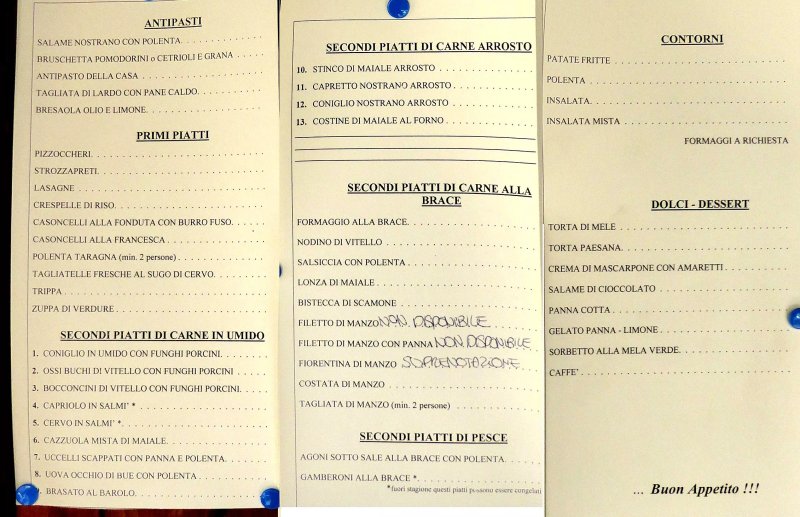 ANTIPASTI
SALAME NOSTRANO CON POLENTA
BRUSCHETTA POMODORINI o CETRIOLI E GRANA
ANTIPASTO DELLA CASA
TAGLIATA DI LARDO CON PANE CALDO
BRESAOLA OLIO E LIMONE
PRIMI PIATTI
PIZZOCCHERI
STROZZAPRETI
LASAGNE
CRESPELLE DI RISO
CASONCELLI ALLA FONDUTA CON BURRO FUSO
CASONCELLI ALLA FRANCESCA
POLENTA TARAGNA (min. 2 persone)
TAGLIATELLE FRESCHE AL SUGO DI CERVO
TRIPPA
ZUPPA DI VERDURE
SECONDI PIATTI DI CARNE IN UMIDO
1. CONIGLIO IN UMIDO CON FUNGHI PORCINI
2. OSSI BUCHI DI VITELLO CON FUNGHI PORCINI
3. BOCCONCINI DI VITELLO CON FUNGHI PORCINI
4. CAPRIOLO IN SALMI' *
5. CERVO IN SALMI' *
6. CAZZUOLA MISTA DI MAIALE
7. UCCELLI SCAPPATI CON PANNA E POLENTA
8. UOVA OCCHIO DI BUE CON POLENTA
BRASATO AL BAROLO
SECONDI PIATTI DI CARNE ARROSTO
10. STINCO DI MAIALE ARROSTO
11. CAPRETTO NOSTRANO ARROSTO
12. CONIGLIO NOSTRANO ARROSTO
13. COSTINE DI MAIALE AL FORNO
SECONDI PIATTI DI CARNE ALLA
BRACE
FORMAGGIO ALLA BRACE
NODINO DI VITELLO
SALSICCIA CON POLENTA
LONZA DI MAIALE
BISTECCA DI SCAMONE
FILETTO DI MANZO NON DISPONIBILE
FILETTO DI MANZO CON PANNA NON DISPONIBILE
FIORENTINA DI MANZO SU PRENOTAZIONE
COSTATA DI MANZO
TAGLIATA DI MANZO (min. 2 persone)
SECONDI PIATTI DI PESCE
AGONI SOTTO SALE ALLA BRACE CON POLENTA
GAMBERONI ALLA BRACE *
*fuori stagione questi piatti possono essere congelati
CONTORNI
PATATE FRITTE
POLENTA
INSALATA
INSALATA MISTA
FORMAGGI A RICHIESTA
DOLCI - DESSERT
TORTA DI MELE
TORTA PAESANA
CREMA DI MASCARPONE CON AMARETTI
SALAME DI CIOCCOLATO
PANNA COTTA
GELATO PANNA - LIMONE
SORBETTO ALLA MELA VERDE
CAFFE'
... Buon Appetito !!!